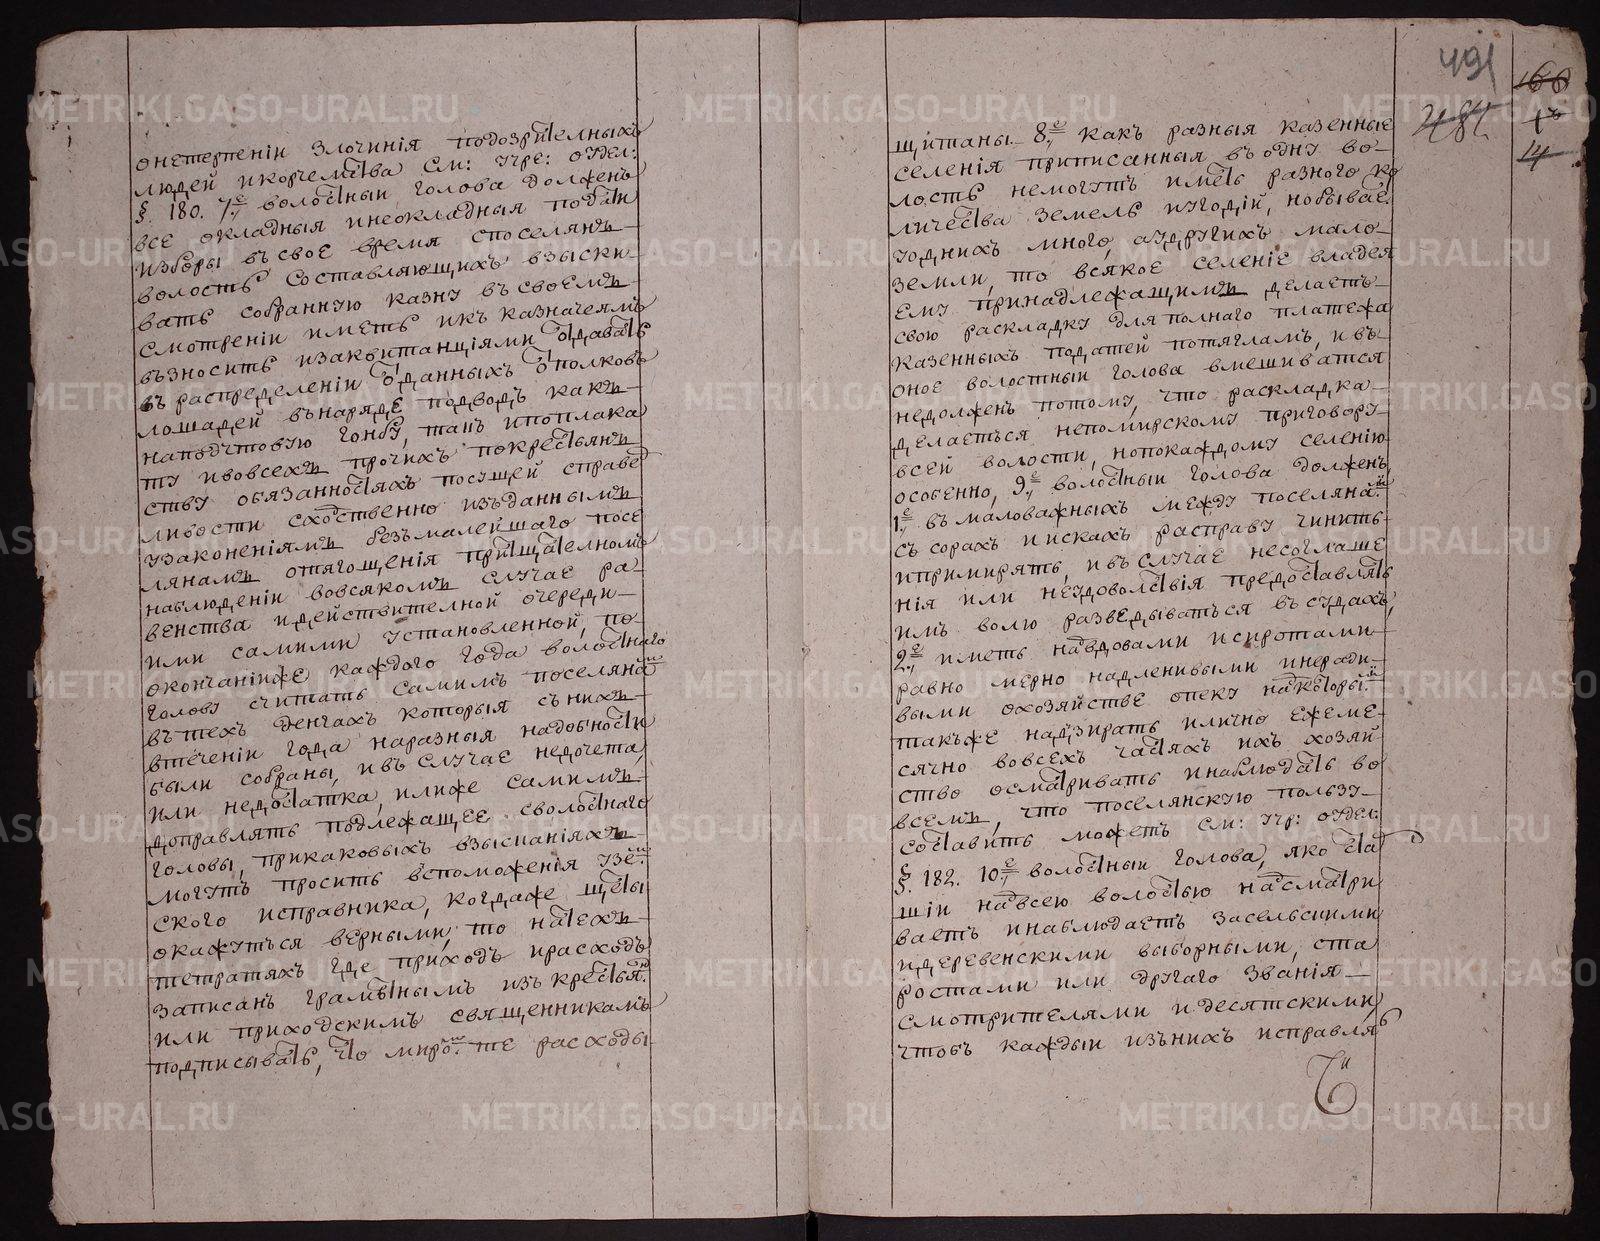 онетерпеніи злочинія подозрителныхъ
людей икорчемства См: учре: отдел:
§. 180. 7е волостныи голова долженъ
все окладныя инеокладныя подати
изборы въсвое время споселянъ
волость составляющихъ взыски-
вать собранную казну въсвоемъ
смотреніи иметь икъ казначеямъ
възносить изаквитанціями отдавать
въ распределеніи отданныхъ отполковъ
лошадей внаряде подводъ какъ
наподчтовую гонбу, такъ ипоплака
ту ивовсехъ прочихъ покрестьян
ству обязанностяхъ посущей справед
ливости сходственно изъданнымъ
узаконеніямъ безъмалейшаго посе
лянамъ отягощенія притщателномъ
наблюденіи вовсякомъ случае ра-
венства идействителной очереди-
ими самими установленной, по-
окончаніиже каждого года волостнаго
голову считать самимъ поселянамъ
вътехъ денгахъ которыя съ нихъ
втеченіи года наразныя надобности
были собраны, ивъ случае недочета,
или недостатка, илиже самимъ
доправлять подлежащее сволостнаго
головы, прикаковыхъ взысканіяхъ
могутъ просить вспоможенія узем
ского исправника, когдаже щеты
окажуться верными, то натехъ
тетратяхъ где приходъ ирасходъ
записанъ грамотнымъ изъ крестьянъ
или приходскимъ священникамъ
подписывать, что миро: те расходы
щитаны. 8е какъ разныя казенные
селенія приписанныя въ одну во-
лость немогутъ иметь разного ко
личества земель иугодій, нобывае
уоднихъ много, аудругихъ мало
земли, то всякое селеніе владея
ему принадлежащимъ делаетъ
свою раскладку для полнаго платежа
казенныхъ податей потягламъ, ивъ-
оное волостныи голова вмешиватся
недолженъ потому, что раскладка-
делаеться непомирскому приговору
всей волости, нопокаждому селенію
особенно, 9е волостныи голова долженъ,
1е въмаловажныхъ между поселянами
съсорахъ иискахъ расправу чинить-
ипримирять, ивъ случае несоглаше
нія или неудоволствія предоставлять
имъ волю разведываться въ судахъ,
2е иметь надвдовами исиротами-
равно мерно надленивыми инеради-
выми охозяйстве опеку надкоторыми
такъже надзирать илично ежеме-
сячно вовсехъ частяхъ ихъ хозяй
ство осматривать инаблюдать во
всемъ, что поселянскую пользу-
составить можетъ См: учр: отдел:
§. 182. 10е волостныи голова, яко ста
шіи надвсею волостью надсматри
ваетъ инаблюдаетъ засельскими
идеревенскими выборными, ста
ростами или другаго званія-
смотрителями идесятскими
чтобъ каждыи изънихъ исправля
491
484